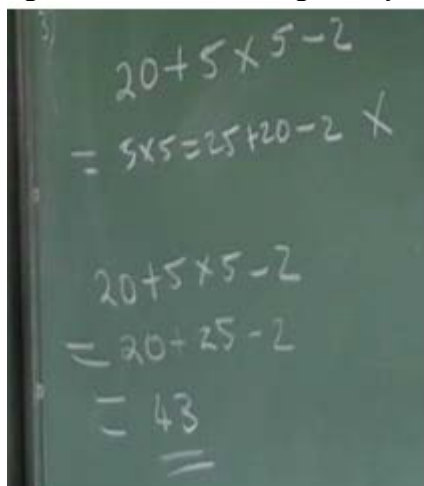 3)
20+5×5-2
= 5×5=25+20-2 ×
20+5×5-2
= 20+25-2
= 43